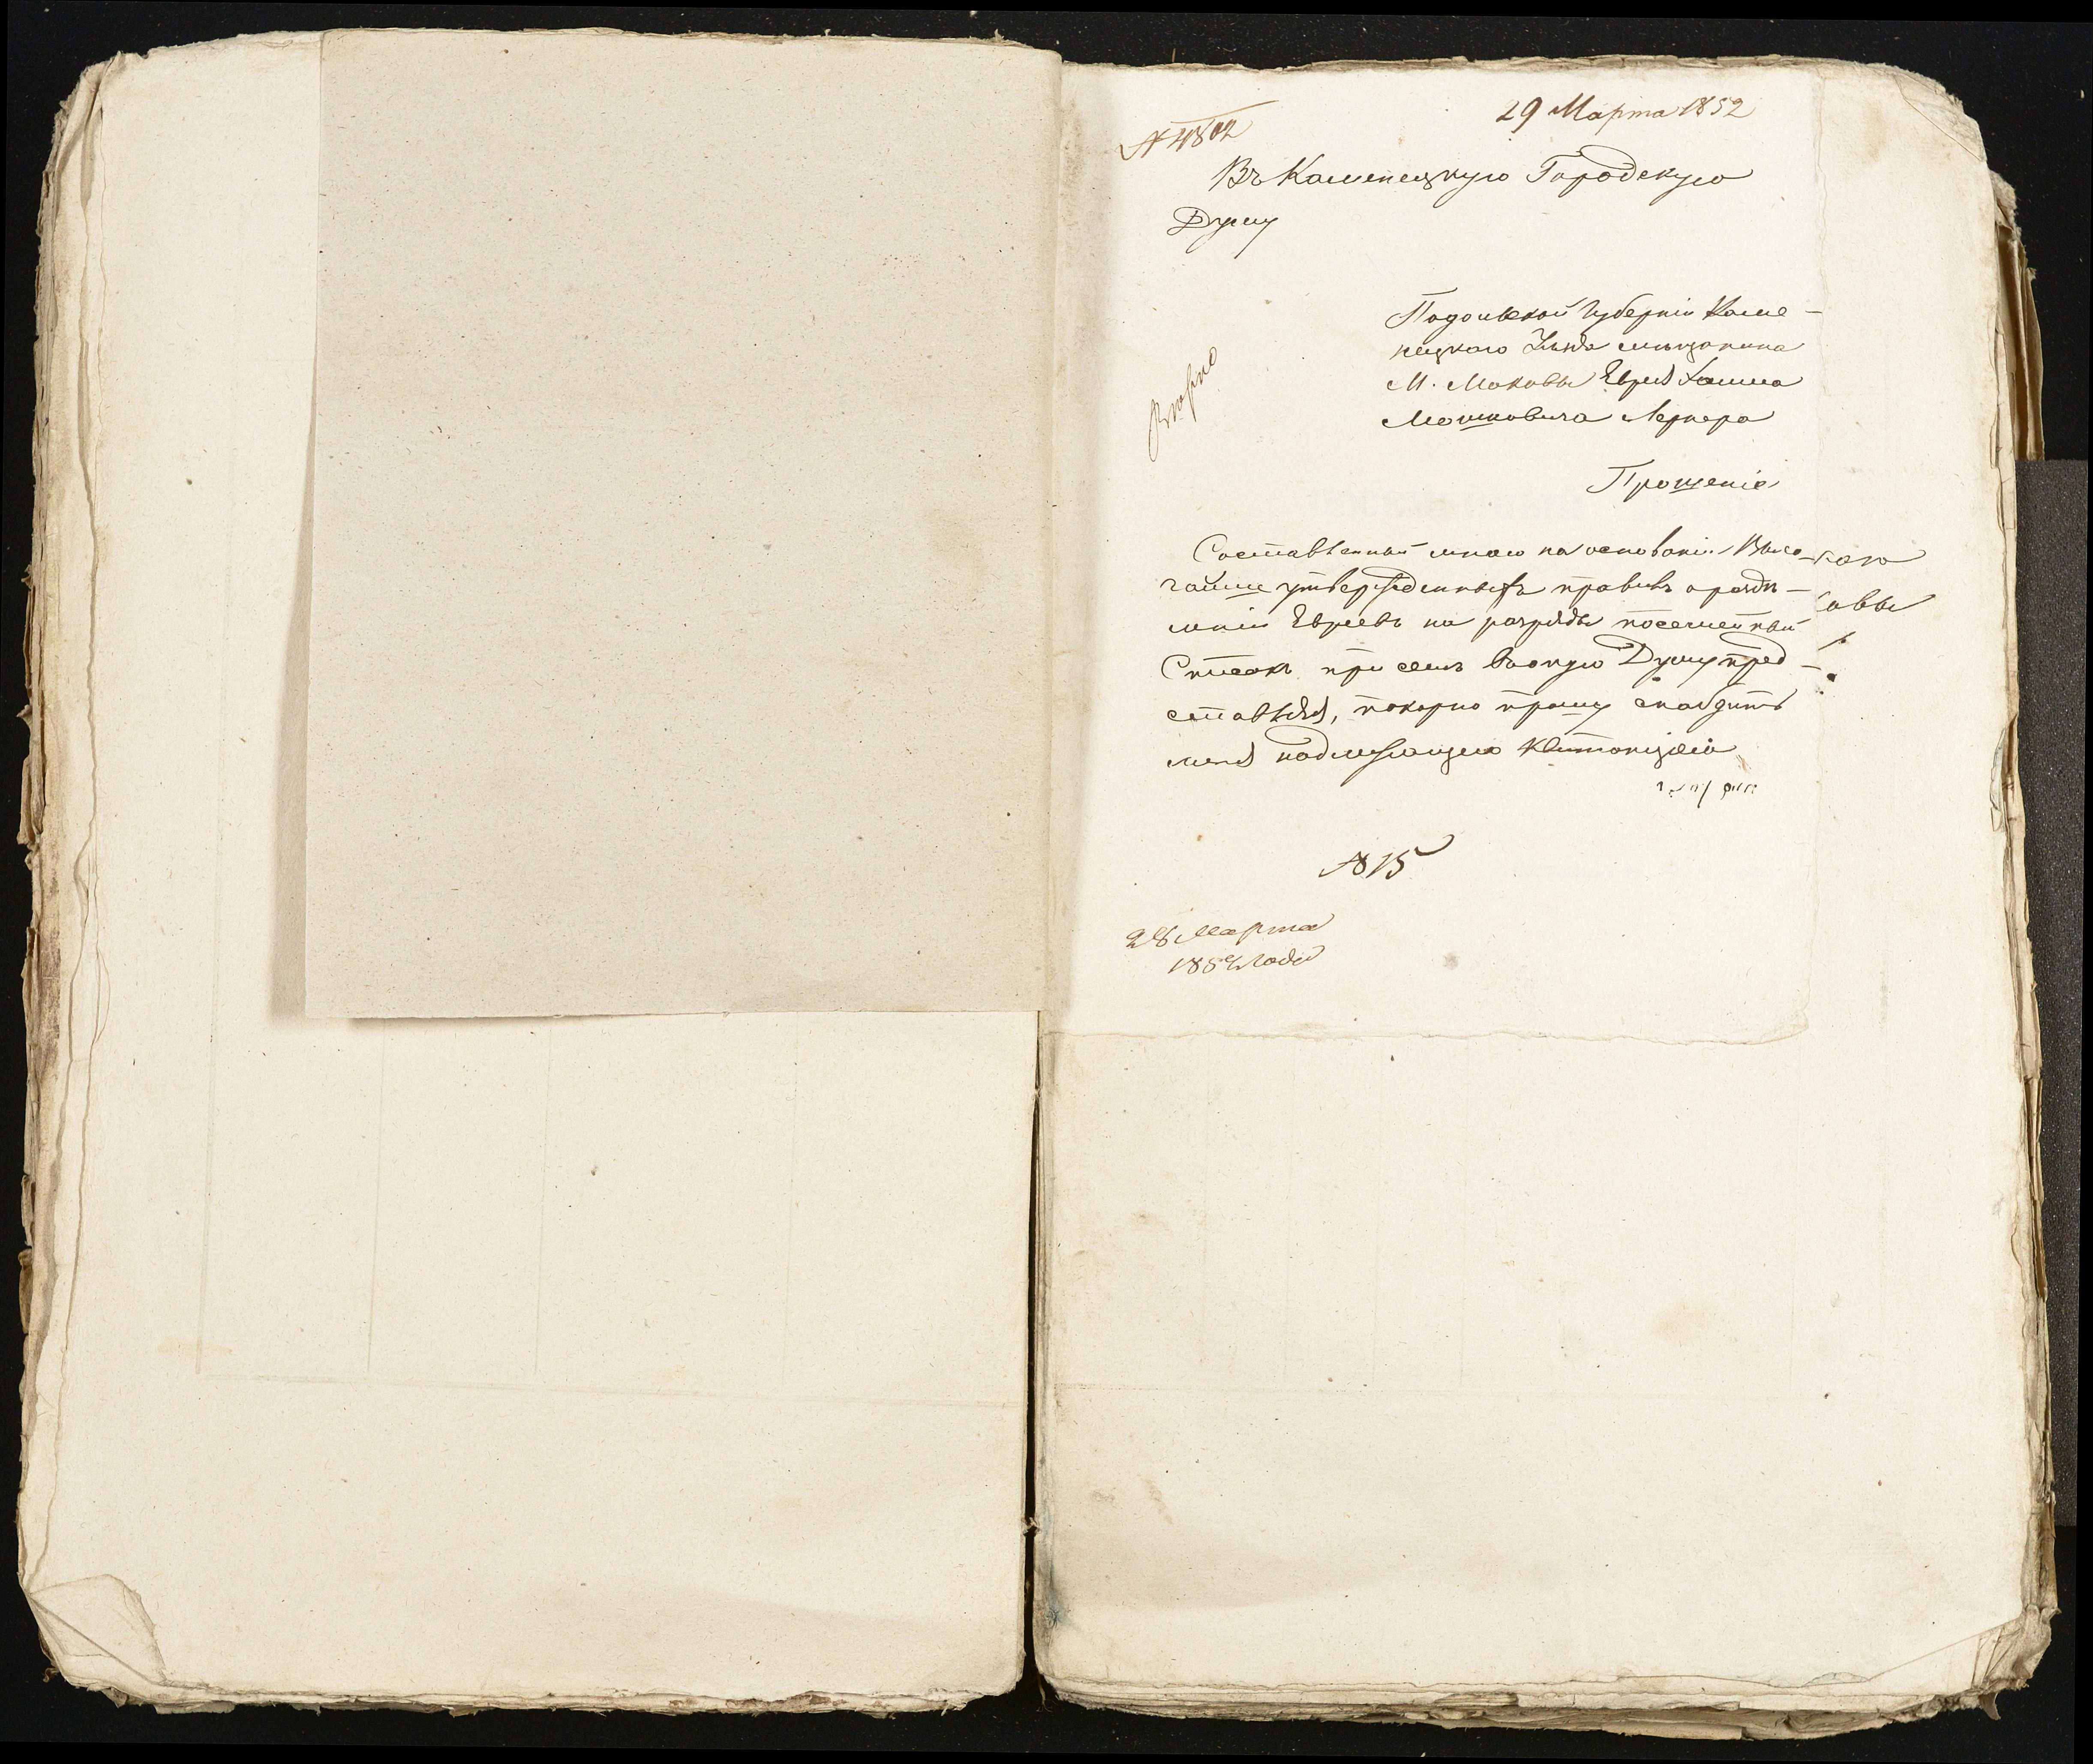 29 Марта 1852
№ 4802
Въ Каменецкую Городскую
Думу
Подольской Губерніи Каме-
нецкаго Уѣзда мѣщанина
М. Макова Еврея Хаима
Мошковича Лернера
Прошеніе
Составленный мною на основаніи Высо-
чайше утвержденныхъ правилъ о раздѣ-
леніи Евреевъ на разряды посемейный
Списокъ при семъ въ оную Думу пред-
ставляя, покорно прошу снабдить
меня надлежащею квитанціею
№ 15
28 Марта
1852 Года